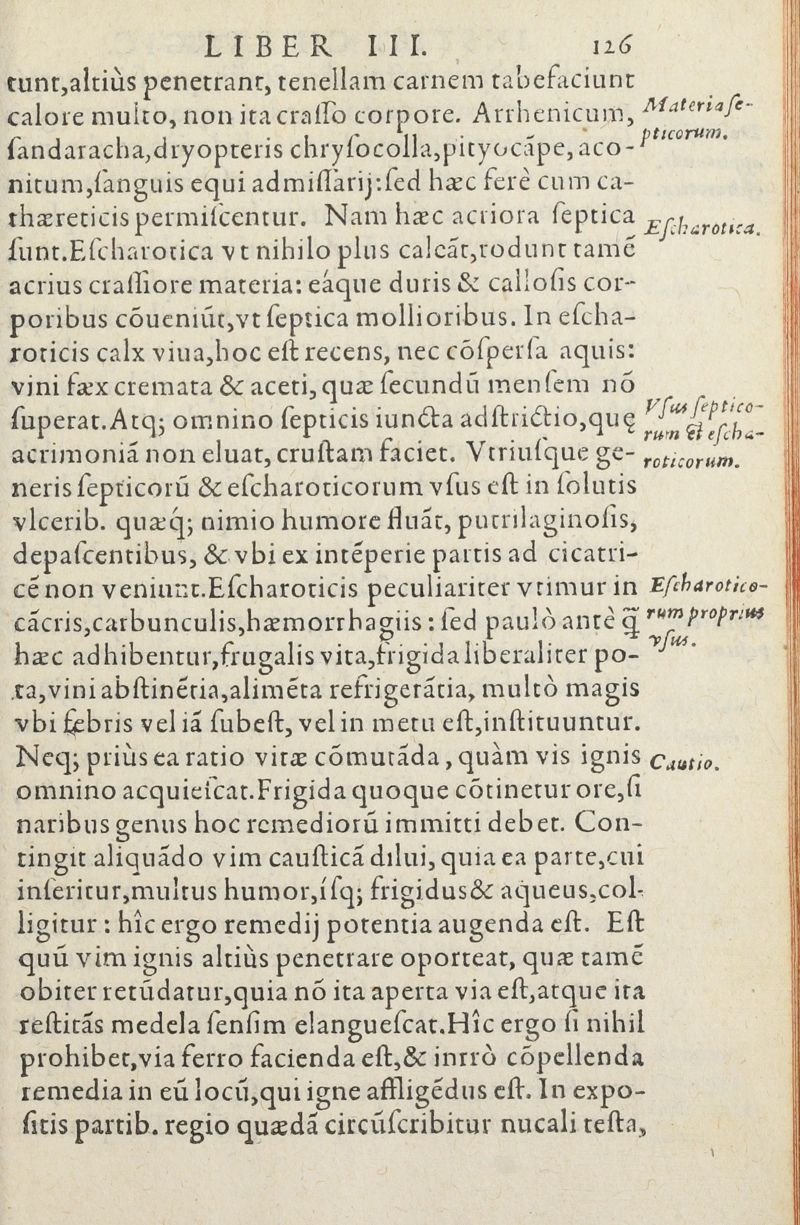 LIBER III. 126
tunt,altiùs penetrant, tenellam carnem tabefaciunt
calore multo, non ita crasso corpore. Arrhenicum,
Materia se-
pticorum.
ſandaracha,dryopteris chryſocolla,pityocãpe, aco-
nitum,ſanguis equi admiſſarij:ſed hæc ferè cum ca-
thæreticis permiſcentur. Nam hæc acriora ſeptica
Eſcharotica.
ſunt.Eſcharotica vt nihilo plus calcãt,rodunt tamẽ
acrius craſſiore materia: eáque duris & calloſis cor-
poribus cõueniũt,vt ſeptica mollioribus. In eſcha-
roticis calx viua,hoc eſt recens, nec cõſperſa aquis:
vini fæx cremata & aceti, quæ ſecundũ menſem nõ
ſuperat.Atq; omnino ſepticis iuncta adſtrictio,quę
Vſus ſeptico-
rum & eſcha-
roticorum.
acrimoniã non eluat, cruſtam faciet. Vtriuſque ge-
neris ſepticorũ & eſcharoticorum vſus eſt in ſolutis
vlcerib. quæq; nimio humore fluãt, putrilaginoſis,
depaſcentibus, & vbi ex intẽperie partis ad cicatri-
cẽ non veniunt.Eſcharoticis peculiariter vtimur in
Eſcharotico-
rum proprius
vſus.
cãcris,carbunculis,hæmorrhagiis : ſed paulò antè q̃
hæc adhibentur,frugalis vita,frigida liberaliter po-
ta,vini abſtinẽtia,alimẽta refrigerãtia, multò magis
vbi febris vel iã ſubeſt, vel in metu eſt,inſtituuntur.
Neq; priùs ea ratio vitæ cõmutãda , quàm vis ignis
Cautio.
omnino acquieſcat.Frigida quoque cõtinetur ore,ſi
naribus genus hoc remediorũ immitti debet. Con-
tingit aliquãdo vim cauſticã dilui, quia ea parte,cui
inſeritur,multus humor,íſq; frigidus & aqueus,col-
ligitur : hîc ergo remedij potentia augenda eſt. Eſt
quũ vim ignis altiùs penetrare oporteat, quæ tamẽ
obiter retũdatur,quia nõ ita aperta via eſt,atque ita
reſtitãs medela ſenſim elangueſcat.Hîc ergo ſi nihil
prohibet,via ferro facienda eſt,& intrò cõpellenda
remedia in eũ locũ,qui igne affligẽdus eſt. In expo-
ſitis partib. regio quædã circũſcribitur nucali teſta,